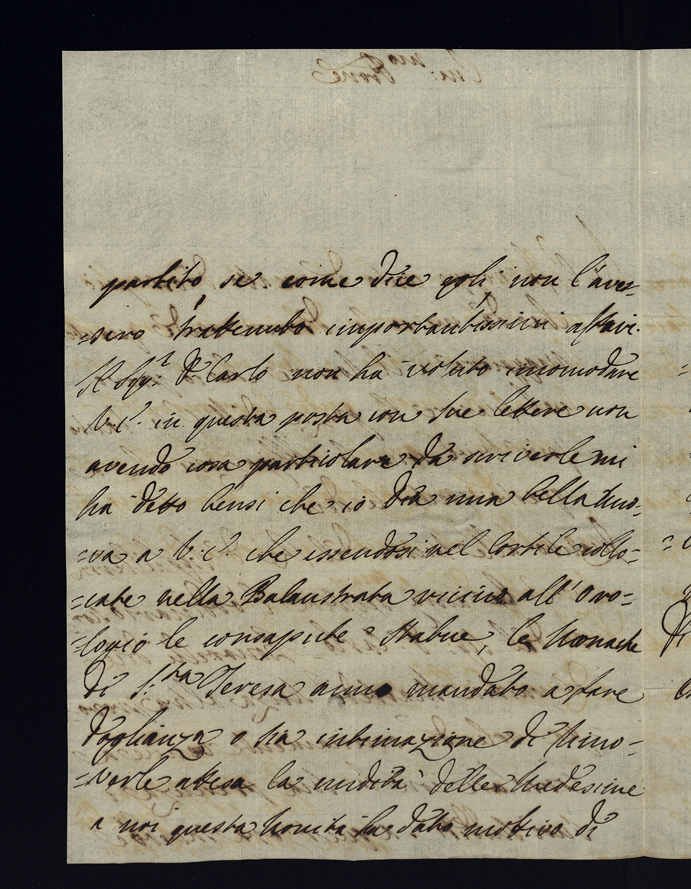 partito se come dice egli non l'aves-
=sero trattenuto importantissimi affari.
Il Sigr. D Carlo non ha voluto incomodare
V. E. in questa posta con sue lettere non
avendo cosa particolare da scriverle mi
ha detto bensi che io dia una bella nuo-
=va a V. E. che essendosi nel Cortile collo-
=cate nella Balaustrata vicino all' Oro-
=logio le consapute Statue, le Monache
di S.ta Teresa anno mandato a fare
doglianza o sia intimazione di rimo-
=verle attesa la nudità delle medesime
a noi questa novità ha dato motivo di